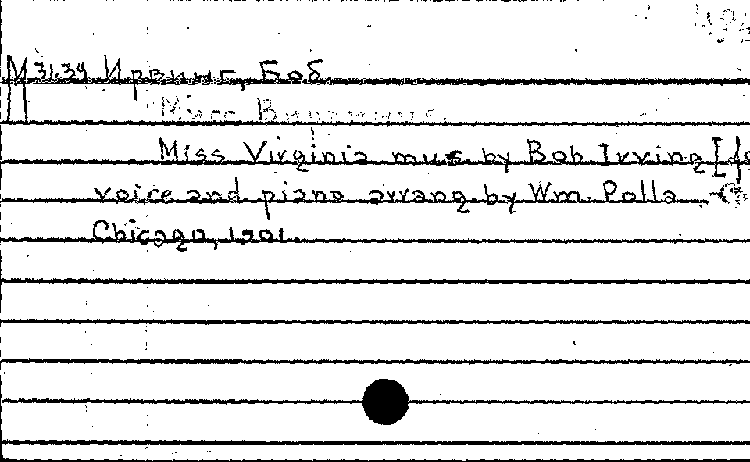 M 31.34 Ирвинг, Боб
Мисс Виргиния.
Miss Virginia mus. by Bob Irving [fo
voice and piano arrang by Wm. Polla. -
Chicago, 1901.